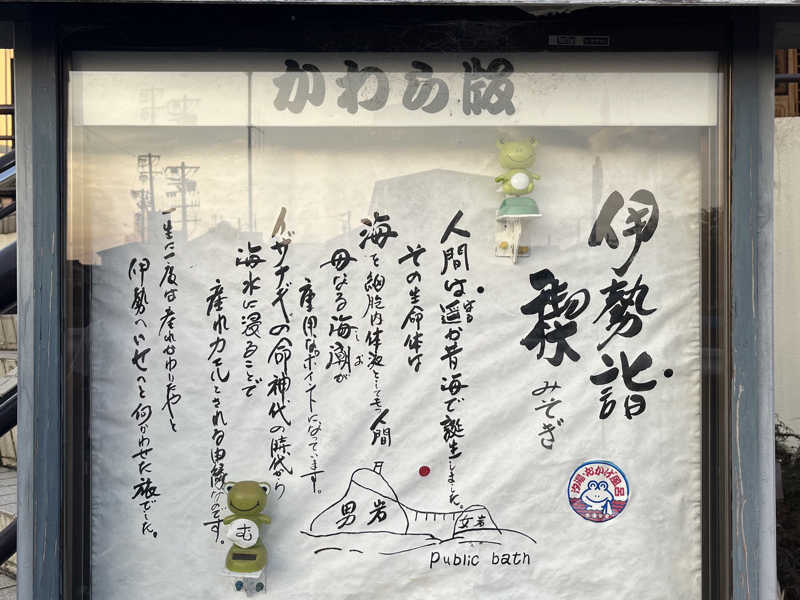 かわら版
伊勢詣
禊
みそぎ
人間は遥か昔海で誕生しました。
その生命体は
海を細胞内体液としてもつ人間
母なる海潮が
しお
重要なポイントになっています。
イザナギの命神代の時代から
海水に浸ることで
産れカエルとされる由縁なのです。
一生に一度は
伊勢へいせへと向かわせた旅でした。
男岩
女岩
public bath
汐湯・おかげ風呂
む